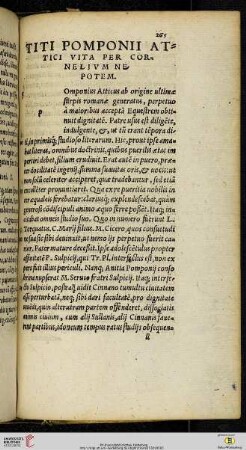 265
TITI POMPONII AT-
TICI VITA PER COR
NELIVM NE
POTEM.
Omponius Atticus ab origine ultima
stirpis romanæ generatus, perpetuo
P
à maioribus acceptã Equestrem obti
nuit dignitatẽ. Patre usus est diligẽte,
indulgente, &, ut tũ erant tẽpora di
imprimisq; studioso literarum. Hic, prout ipse ama
bat literas, omnibus doctrinis, quibus puerilis ætas im
pertiri debet, filium erudiuit. Erat autẽ in puero, præ
ter docilitatẽ ingenij, summa suauitas oris, & uocis: ut
non solũ celeriter acciperet, quæ tradebantur, sed etiã
pronunciaret. Qua ex re pueritia nobilis in
ter æquales ferebatur, clariusq; explendescebat, quàm
generosi cõdiscipuli animo æquo ferre possẽt. Itaq; in
citabat omneis studio suo. Quo in numero fuerunt L.
Torquatus, C. Marij filius, M. Cicero, quos consuetudi
ne sua sic sibi deuinxit, ut nemo ijs perpetuo fuerit cha
rior. Pater mature decessit. Ipse adolescẽtulus propter
affinitatẽ P. Sulpicij, qui Tr. Pl. interfectus est, non ex
pers fuit illius periculi. Nanq; Anitia Pomponij conso
brina nupserat M. Seruio fratri Sulpicij. Itaq; interfe
cto Sulpicio, postq̃ uidit Cinnano tumultu ciuitatem
esse perturbatã, neq; sibi dari facultatẽ, pro dignitate
uiuẽdi, quin alterutram partem offenderet, dissociatis
animis ciuium, cum alij Sullanis, alij Cinnanis faue
rent partibus, idoneum tempus ratus studijs obsequen
ll